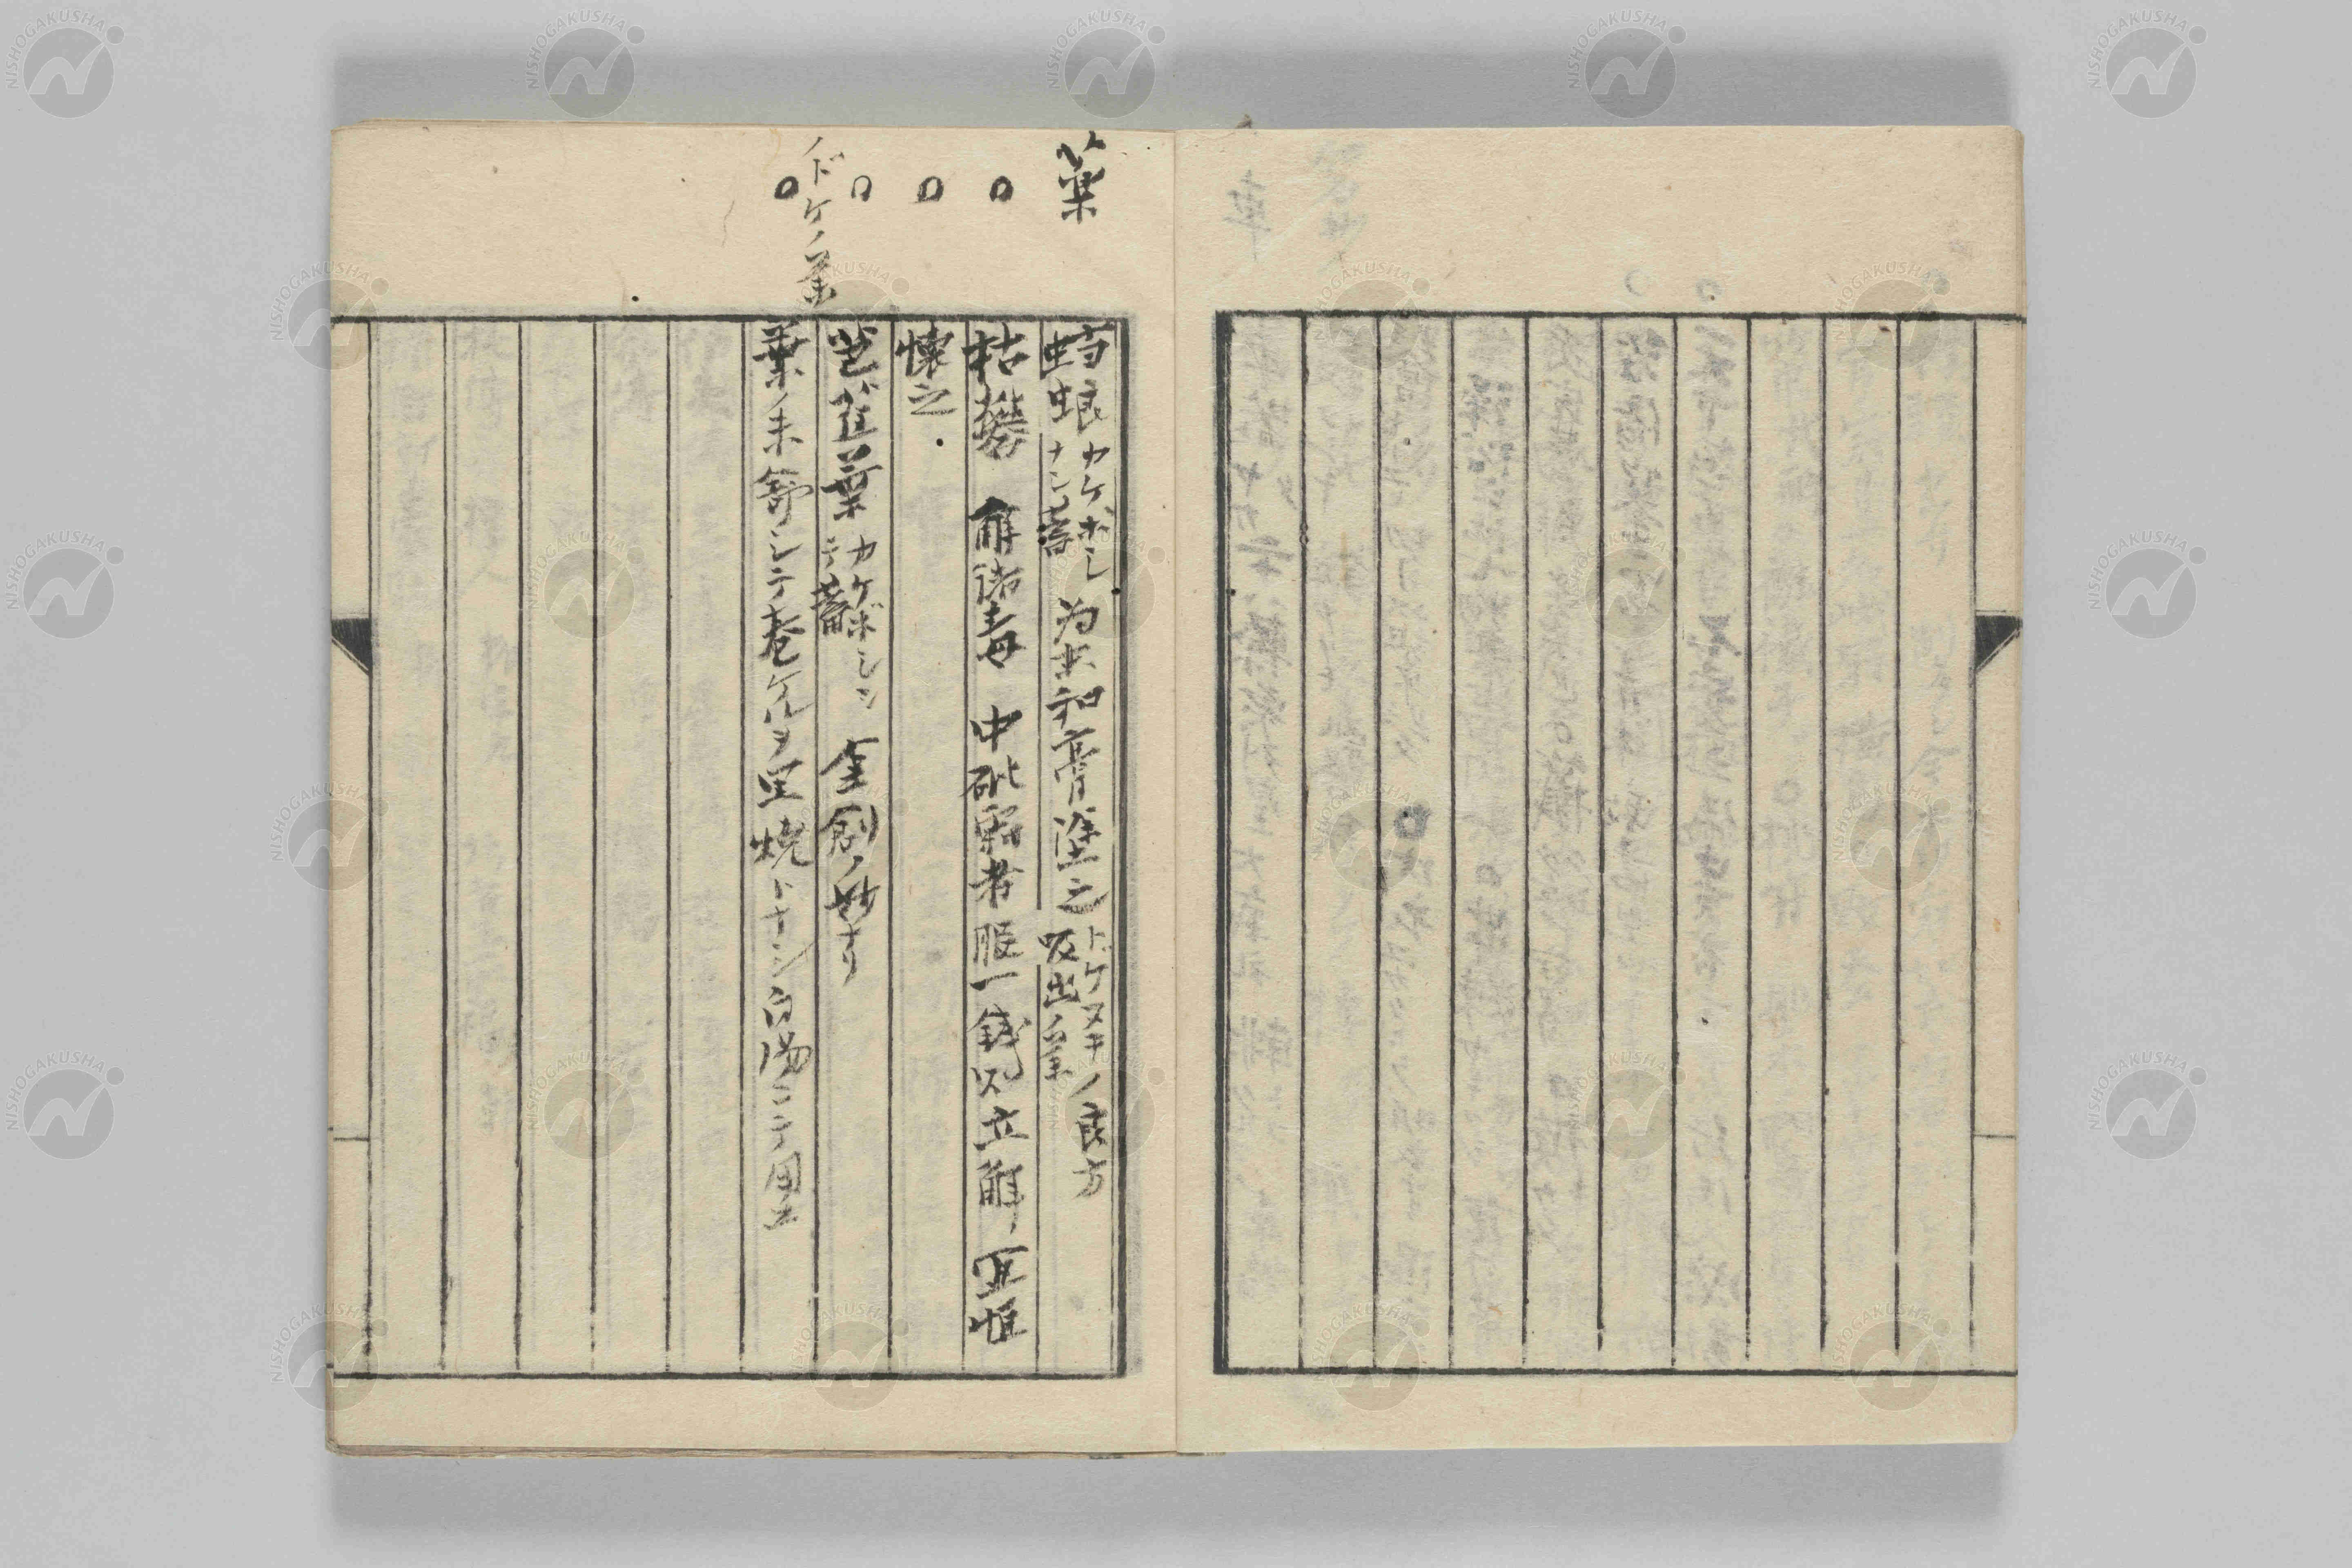 薬
蜋
カケボシ
ナシ蓄
為末和膏塗之
トゲヌキノ良方
吸出ノ薬
枯礬 解諸毒 中砒霜者服一銭以立解、宜恒
懐之
葉
カケボシシ
テ蓄
金創ノ妙ナリ
ノドケノ薬
葉ノ未舒シテ巻ケルヲ黒焼トナシ白湯ニテ用ユ
NISHOGAKUSHA